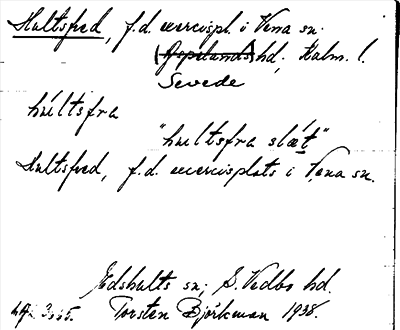 Hultsfred, f.d. exercispl. i Vena sn.
(Aspelands) hd; Kalm. l.
Sevede
húltsfra
"hultsfra slǽt"
Hultsfred, f.d. exercisplats i Vena sn.
Edshults sn; S. Vedbo hd.
Torsten Björkman 1938.